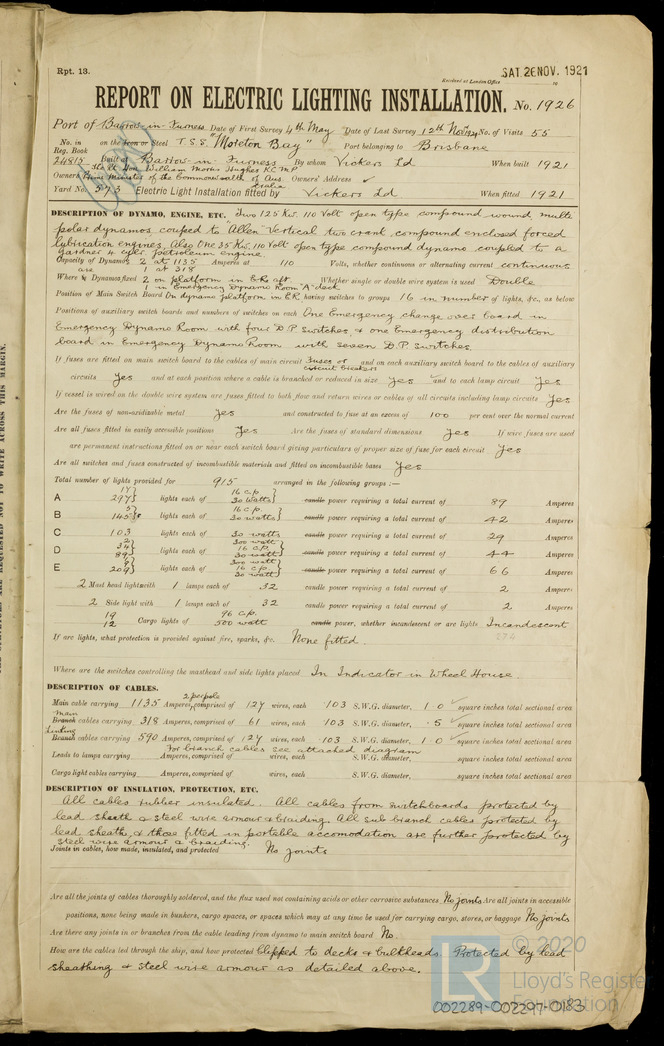 Rpt. 13.
Received at London Office
SAT. 26 NOV. 1921
REPORT ON ELECTRIC LIGHTING INSTALLATION. No. 1926
Port of Barrow-in-Furness Date of First Survey 4th May Date of Last Survey 12th Nov. 1921 No. of Visits 55
No. in Reg. Book on the Iron or Steel T.S.S. "Moreton Bay" Port belonging to Brisbane
24815 Built at Barrow-in-Furness By whom Vickers Ld When built 1921
Owners The Rt Hon William Morris Hughes K.C. M.P.
Prime Minister of the Commonwealth of Australia Owners' Address ✓
Yard No. 573 Electric Light Installation fitted by Vickers Ld When fitted 1921
DESCRIPTION OF DYNAMO, ENGINE, ETC. Two 125 Kw. 110 Volt open type compound wound multi
polar dynamos coupled to Allen Vertical two crank compound enclosed forced
lubrication engines. Also One 35 Kw. 110 Volt open type compound dynamo coupled to a
Gardner 4 cyler. petroleum engine
Capacity of Dynamos 2 at 1135 Amperes at 110 Volts, whether continuous or alternating current continuous
1 at 318
Where are Dynamos fixed 2 on platform in E.R. aft. Whether single or double wire system is used Double
1 in Emergency Dynamo Room "A" deck
Position of Main Switch Board On dynamo platform in E.R. having switches to groups 16 in number of lights, &c., as below
Positions of auxiliary switch boards and numbers of switches on each One Emergency change over board in
Emergency Dynamo Room with four D.P. switches, & one Emergency distribution
board in Emergency Dynamo Room with seven D.P. switches.
If fuses are fitted on main switch board to the cables of main circuit Fuses or circuit breakers and on each auxiliary switch board to the cables of auxiliary
circuits Yes and at each position where a cable is branched or reduced in size Yes and to each lamp circuit Yes
If vessel is wired on the double wire system are fuses fitted to both flow and return wires or cables of all circuits including lamp circuits Yes
Are the fuses of non-oxidizable metal Yes and constructed to fuse at an excess of 100 per cent over the normal current
Are all fuses fitted in easily accessible positions Yes Are the fuses of standard dimensions Yes If wire fuses are used
are permanent instructions fitted on or near each switch board giving particulars of proper size of fuse for each circuit Yes
Are all switches and fuses constructed of incombustible materials and fitted on incombustible bases Yes
Total number of lights provided for 915 arranged in the following groups :—
17 16 c.p.
A 297 lights each of 30 watts candle power requiring a total current of 89 Amperes
5 16 c.p.
B 145 lights each of 30 watts candle power requiring a total current of 42 Amperes
C 103 lights each of 30 watts candle power requiring a total current of 29 Amperes
2 300 watts
34 16 c.p.
D 89 lights each of 30 watts candle power requiring a total current of 44 Amperes
9 300 watts
16 c.p.
E 209 lights each of 30 watt candle power requiring a total current of 66 Amperes
2 Mast head light with 1 lamps each of 32 candle power requiring a total current of 2 Amperes
2 Side light with 1 lamps each of 32 candle power requiring a total current of 2 Amperes
19 96 c.p.
12 Cargo lights of 500 watt candle power, whether incandescent or arc lights Incandescent
If arc lights, what protection is provided against fire, sparks, &c. None fitted.
Where are the switches controlling the masthead and side lights placed In Indicator in Wheel House.
DESCRIPTION OF CABLES.
Main cable carrying 1135 Amperes, 2 per pole comprised of 127 wires, each .103 S.W.G. diameter, 1.0 square inches total sectional area
Main Branch cables carrying 318 Amperes, comprised of 61 wires, each .103 S.W.G. diameter, .5 square inches total sectional area
Branch cables carrying 590 Amperes, comprised of 127 wires, each .103 S.W.G. diameter, 1.0 square inches total sectional area
For branch cables see attached diagram
Leads to lamps carrying Amperes, comprised of wires, each S.W.G. diameter, square inches total sectional area
Cargo light cables carrying Amperes, comprised of wires, each S.W.G. diameter, square inches total sectional area
DESCRIPTION OF INSULATION, PROTECTION, ETC.
All cables rubber insulated. All cables from switchboards protected by
lead sheath & steel wire armour & braiding. All sub branch cables protected by
lead sheath, & those fitted in portable accomodation are further protected by
steel wire armour & braiding.
Joints in cables, how made, insulated, and protected No joints
Are all the joints of cables thoroughly soldered, and the flux used not containing acids or other corrosive substances No joints Are all joints in accessible
positions, none being made in bunkers, cargo spaces, or spaces which may at any time be used for carrying cargo, stores, or baggage No joints
Are there any joints in or branches from the cable leading from dynamo to main switch board No.
How are the cables led through the ship, and how protected Clipped to decks & bulkheads. Protected by lead
sheathing & steel wire armour as detailed above.
© 2020
LR
Lloyd's Register
Foundation
002289-002297-0183